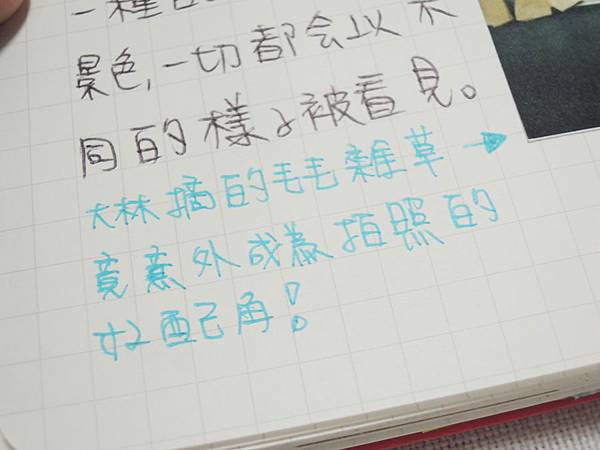 一種
景色,一切都会以不
同的樣子被看見。
大林摘的毛毛雜草→
竟意外成為拍照的
好配角!